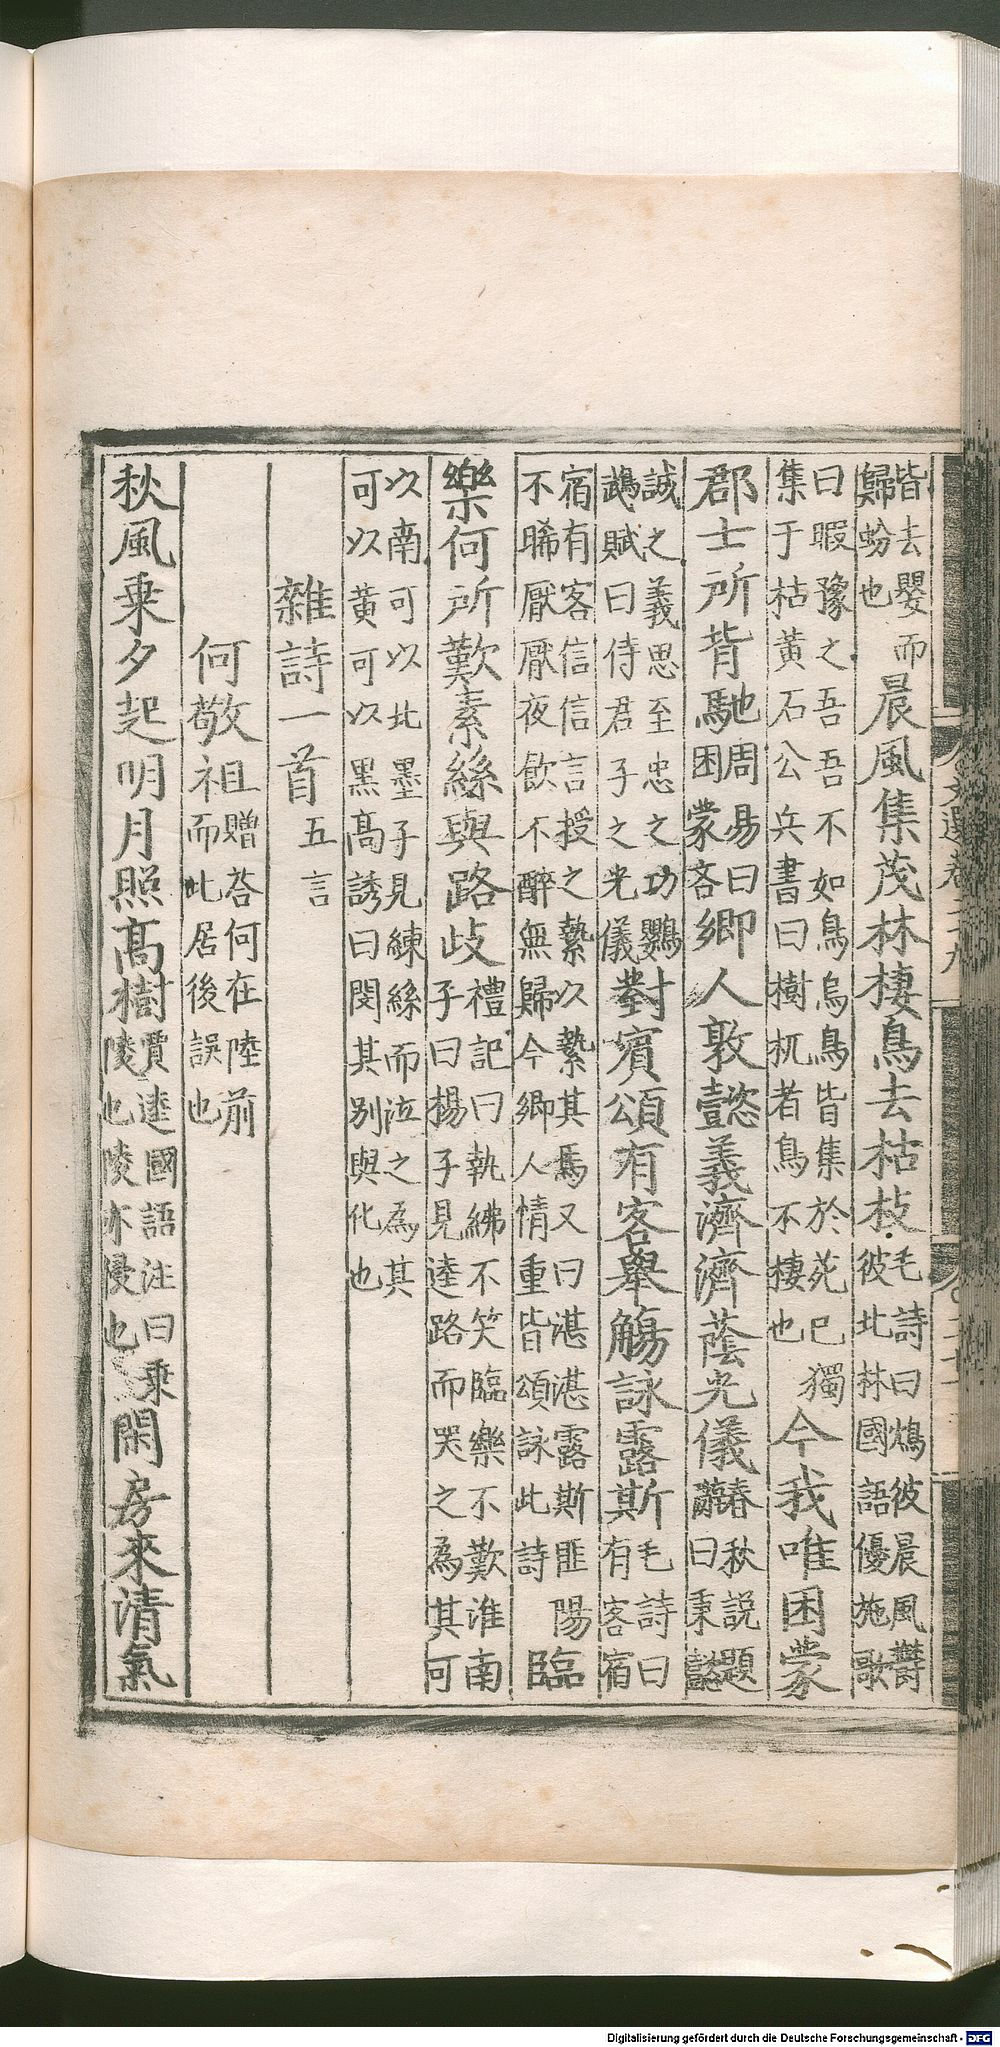 皆去嬰而歸蚡也晨風集茂林棲鳥去枯枝毛詩曰鴥彼晨風鬱彼北林國語優施歌
曰暇豫之吾吾不如鳥烏鳥皆集於苑已獨集于枯黃石公兵書曰樹杌者鳥不棲也今我唯困蒙
郡士所背馳周易曰困蒙吝鄉人敦懿義濟濟蔭光儀春秋說題辭曰秉懿
誠之義思至忠之文功鸚鵡賦曰侍君子之光儀對賓頌有客舉觴詠露斯毛詩曰有客宿
宿有客信信言授之縶以縶其馬又曰湛湛露斯匪陽不晞厭厭夜飲不醉無歸今鄉人情重皆頌詠此詩臨
樂何所歎素絲與路歧禮記曰執紼不笑臨樂不歎淮南子曰楊子見逵路而哭之為其可
以南可以北墨子見練絲而泣之為其可以黃可以黑高誘曰閔其別與化也
雜詩一首五言
何敬祖贈荅何在陸前而此居後誤也
秋風乘夕起明月照高樹賈逵國語注曰乘陵也陵亦侵也閑房來清氣
Digitalisierung gefördert durch die Deutsche Forschungsgemeinschaft - DFG